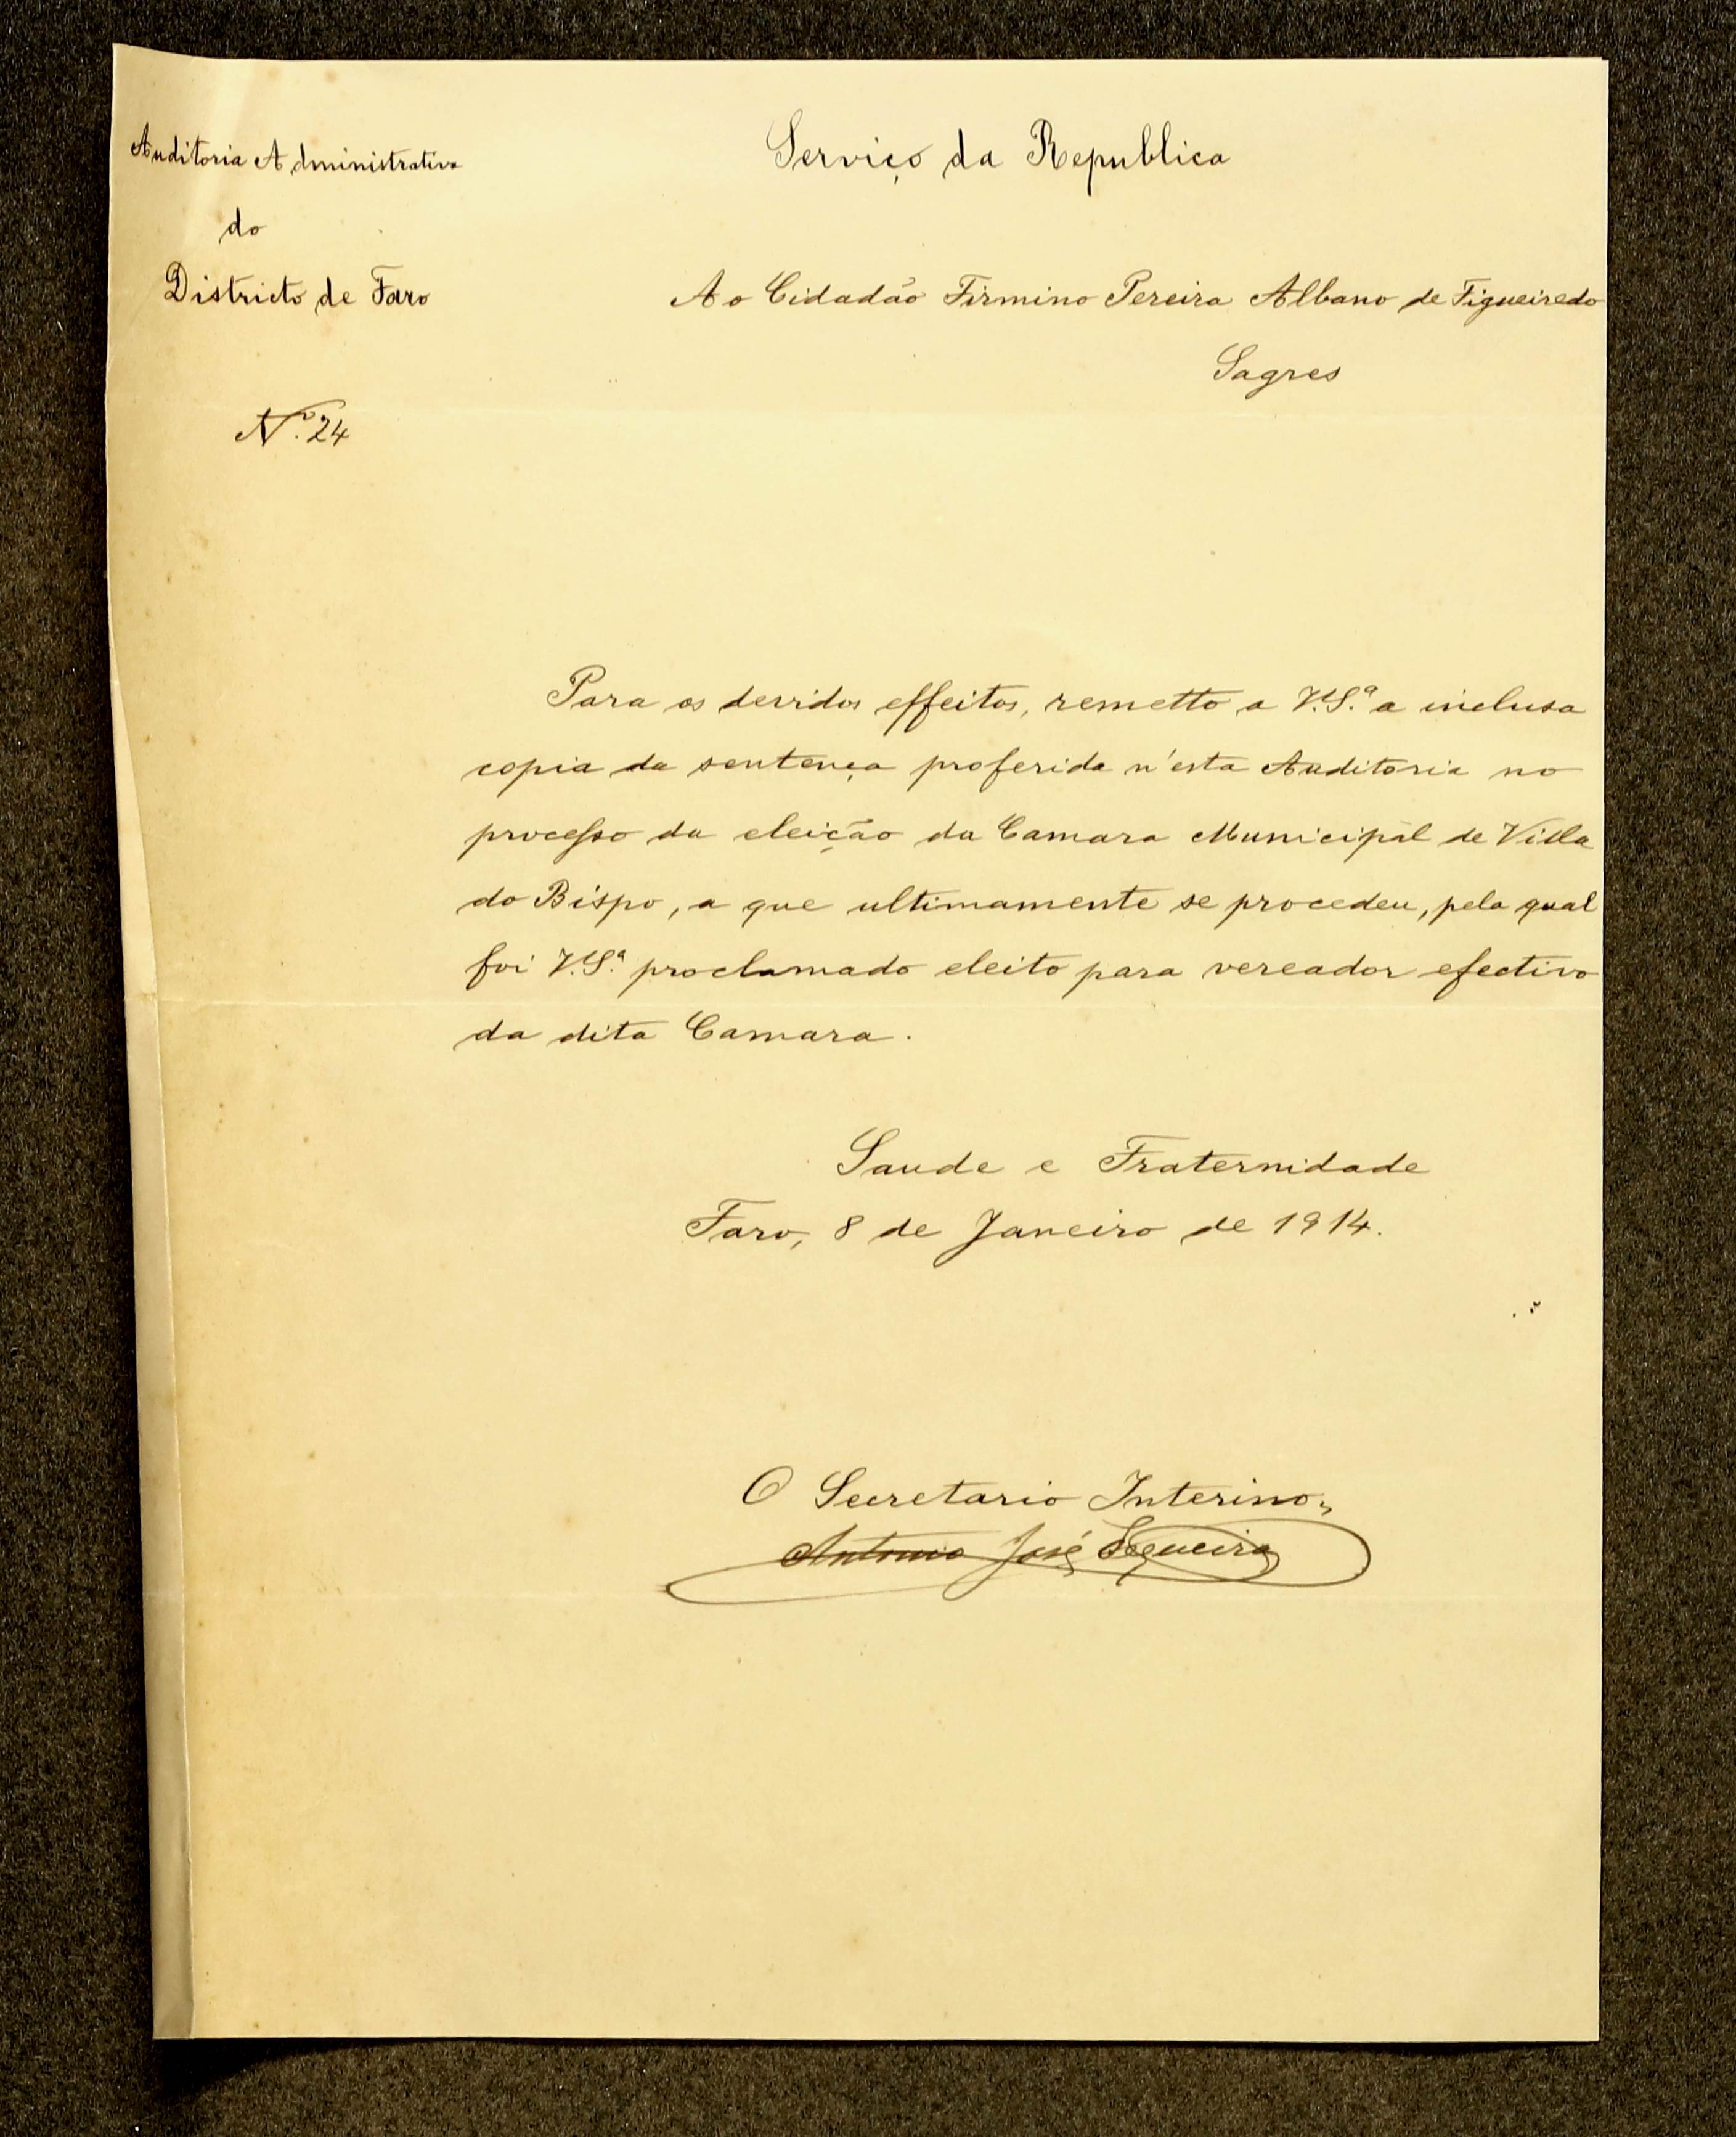 Auditoria Administrativa
do
Districto de Faro
Nº. 24
Serviço da Republica
Ao Cidadão Firmino Pereira Albano de Figueiredo
Sagres
Para os devidos effeitos, remetto a V. S.ª a inclusa
copia da sentença proferida n'esta Auditoria no
processo da eleição da Camara Municipal de Villa
do Bispo, a que ultimamente se procedeu, pela qual
foi V. S.ª proclamado eleito para vereador efectivo
da dita Camara.
Saude e Fraternidade
Faro, 8 de Janeiro de 1914.
O Secretario Interino,
Antonio José Sequeira